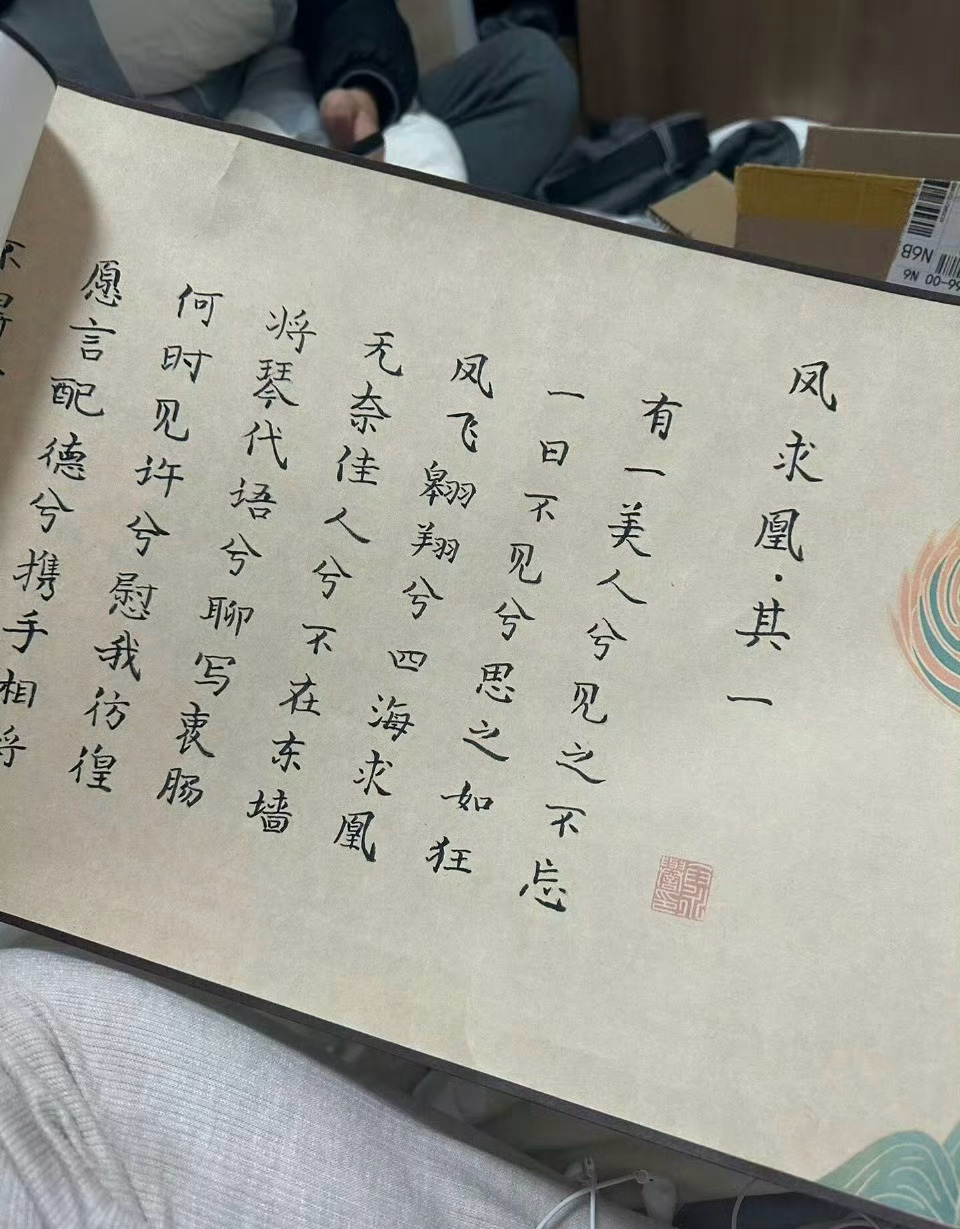 凤求凰·其一
有一美人兮见之不忘
一日不见兮思之如狂
凤飞翱翔兮四海求凰
无奈佳人兮不在东墙
将琴代语兮聊写衷肠
何时见许兮慰我彷徨
愿言配德兮携手相将
N6B